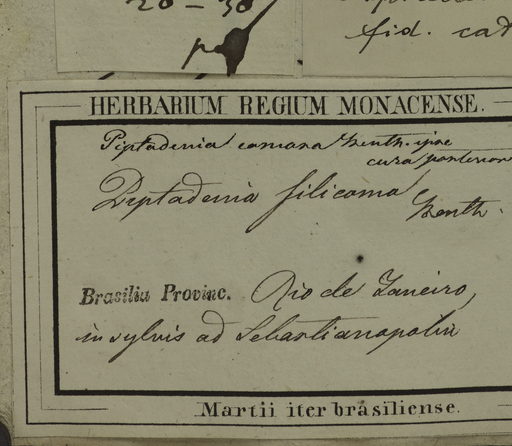 20 – 30
fid. cat
HERBARIUM REGIUM MONACENSE.
Piptadenia Benth. ipse
cura posteriore
Piptadenia
Benth.
Brasilia Provinc. Rio de Janeiro,
in sylvis ad Sebastianopolin
Martii iter brasiliense.